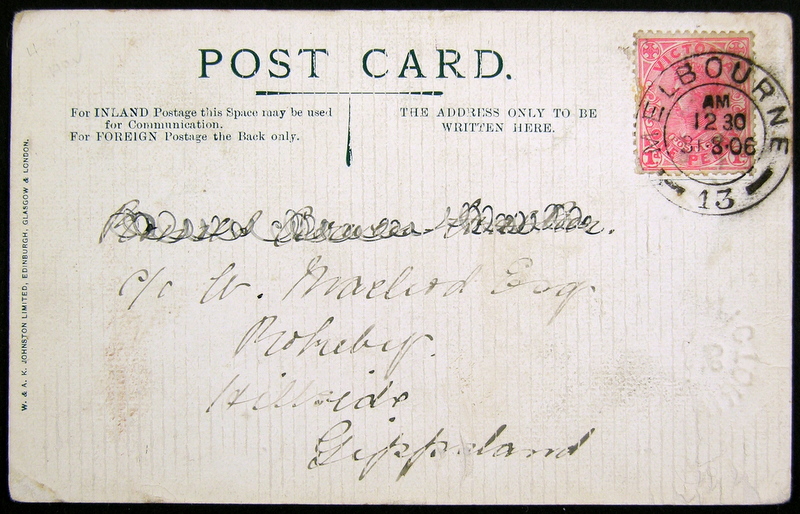 POST CARD.
For INLAND Postage this Space may be used
for Communication.
For FOREIGN Postage the Back only.
THE ADDRESS ONLY TO BE
WRITTEN HERE.
VICTORIA
ONE PENNY
MELBOURNE
AM
12 30
31·8·06
13
c/o W. Macleod Esq.
Rokeby.
Hillside
Gippsland
W. & A. K. JOHNSTON LIMITED, EDINBURGH, GLASGOW & LONDON.